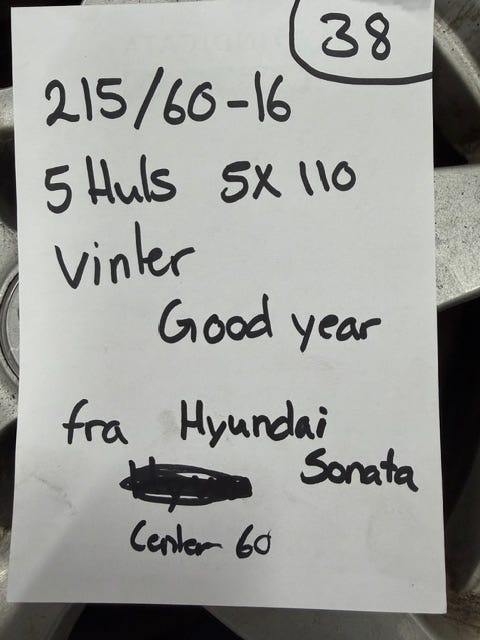 38
215/60-16
5 Huls 5X110
Vinter
Good year
fra Hyundai
Sonata
Center 60